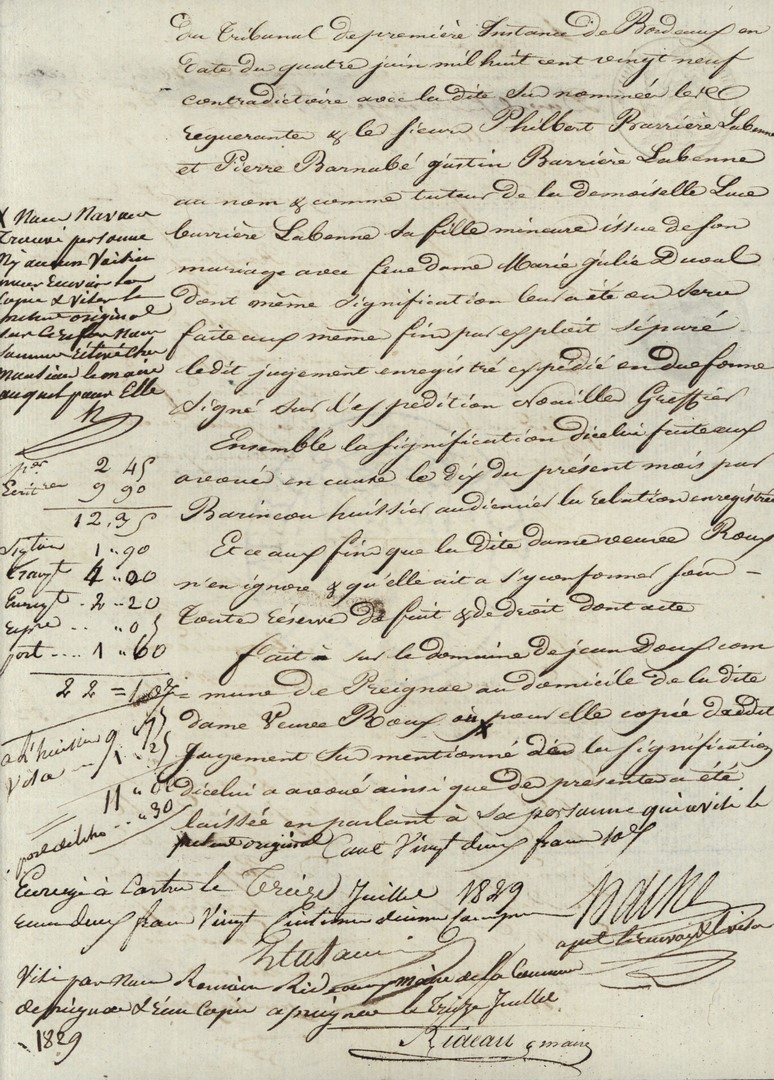 Du Tribunal de première Instance de Bordeaux en
date du quatre juin mil huit cent vingt neuf
contradictoire avec la dite su nommée les
requerante & le sieur Philbert Barrière Labenne
et Pierre Barnabé Justin Barrière Labenne
au nom & comme tuteur de la demoiselle Luce
barrière Labenne sa fille mineure issue de son
mariage avec feue dame Marie Julie Duval
dont même signification leur a été ou sera
faite aux même fin par exploit séparé
le dit jugement enregistré expédié en due forme
signé sur l'expedition Greffier
Ensemble la signification dicelui faite aux
avoué en cause le dix du présent mois par
Barincou huissier audiencier la relation enregistrée
Et ce aux fin que la dite dame veuve Roux
n'en ignore & qu'elle ait a s'y conformer sous
Toute réserve de fait & de droit dont acte
fait à sur le domaine de jean Doux com
mune de Preignac au domicile de la dite
dame Veuve Roux où X pour elle copié du dit
jugement su mentionné de la signification
dicelui a avoué ainsi que de presente a été
laissée en parlant à sa personne qui a visé le
présent original Cout Vingt deux franc 10s
X Nous N'avons
Trouvé personne
Ny aucun Voisin
pour la
Copie & Viser le
présent original
sur Nous
sommes retiré chez
Monsieur le maire
auquel pour Elle
2 45
9 90
12,35
1 " 90
4 " 00
Enregt - 2 - 20
" 05
port .... 1 " 60
22 = 10s
a l'huissier 9 " 75
Visa 1 " 25
11 " 00
" 30
Enregé à Castres le Treize Juillet 1829
deux franc Vingt Centimes dixime compris
après
Visé par Nous Romain Rideau maire de la Commune
de preignac & Reçu Copie a preignac le Treize Juillet
1829
Rideau maire